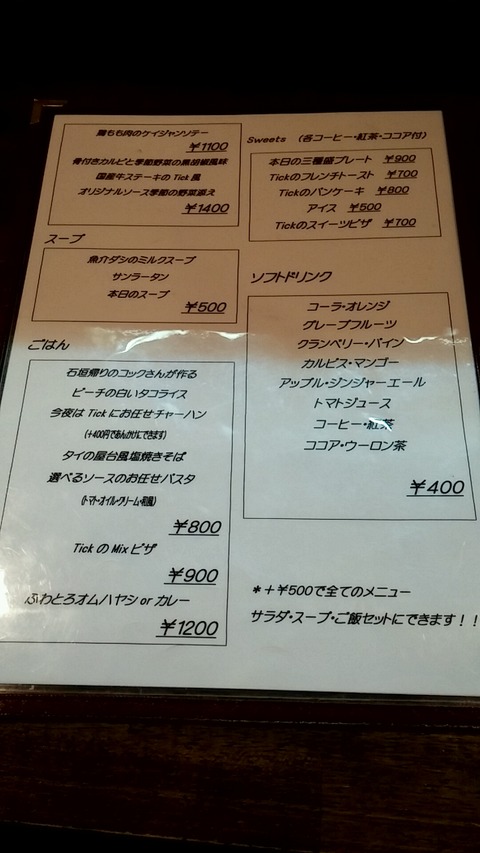 鶏もも肉のケイジャンソテー
￥1100
骨付きカルビと季節野菜の黒胡椒風味
国産牛ステーキのTick風
オリジナルソース季節の野菜添え
￥1400
スープ
魚介ダシのミルクスープ
サンラータン
本日のスープ
￥500
ごはん
石垣帰りのコックさんが作る
ピーチの白いタコライス
今夜はTickにお任せチャーハン
(+400円であんかけにできます)
タイの屋台風塩焼きそば
選べるソースのお任せパスタ
(トマト・オイル・クリーム・和風)
￥800
TickのMixピザ
￥900
ふわとろオムハヤシorカレー
￥1200
Sweets （各コーヒー・紅茶・ココア付）
本日の三種盛プレート ￥900
Tickのフレンチトースト ￥700
Tickのパンケーキ ￥800
アイス ￥500
Tickのスイーツピザ ￥700
ソフトドリンク
コーラ・オレンジ
グレープフルーツ
クランベリー・パイン
カルピス・マンゴー
アップル・ジンジャーエール
トマトジュース
コーヒー・紅茶
ココア・ウーロン茶
￥400
＊＋￥500で全てのメニュー
サラダ・スープ・ご飯セットにできます！！